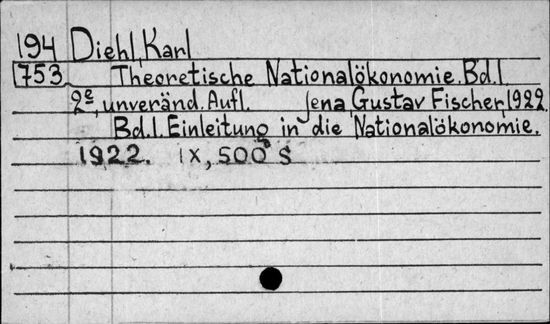 194 Diehl, Karl
753 Theoretische Nationalökonomie. Bd. 1.
2e, unveränd. Aufl. Jena, Gustav Fischer, 1922.
Bd. 1. Einleitung in die Nationalökonomie.
1922. IX, 500 S